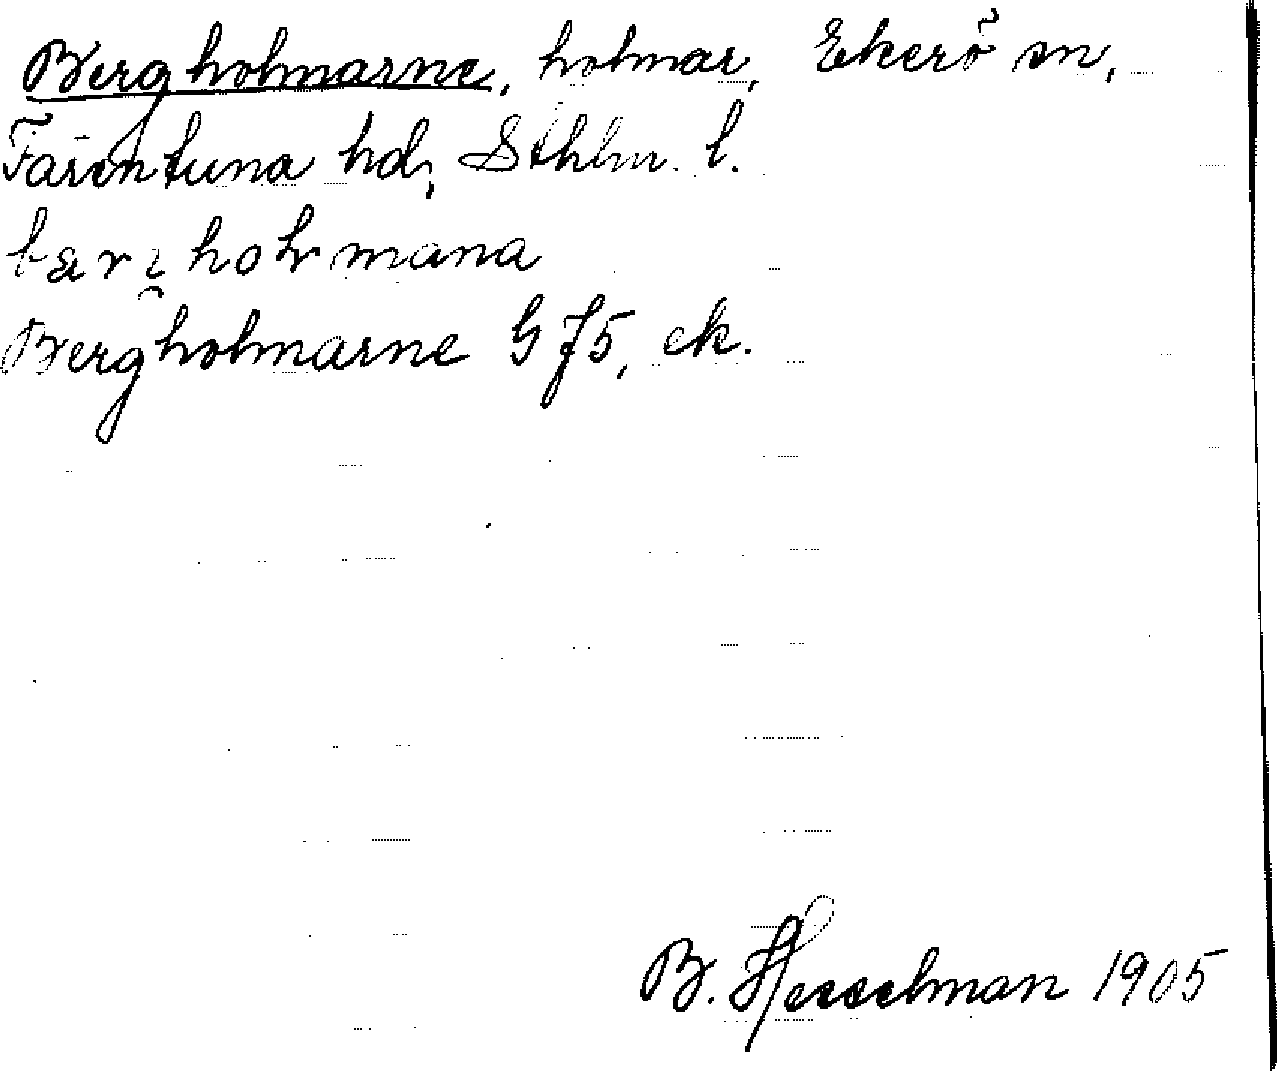 Bergholmarne, holmar, Ekerö sn,
Färentuna hd, Sthlm. l.
Bergholmarne G f5, ek.
B. Hesselman 1905